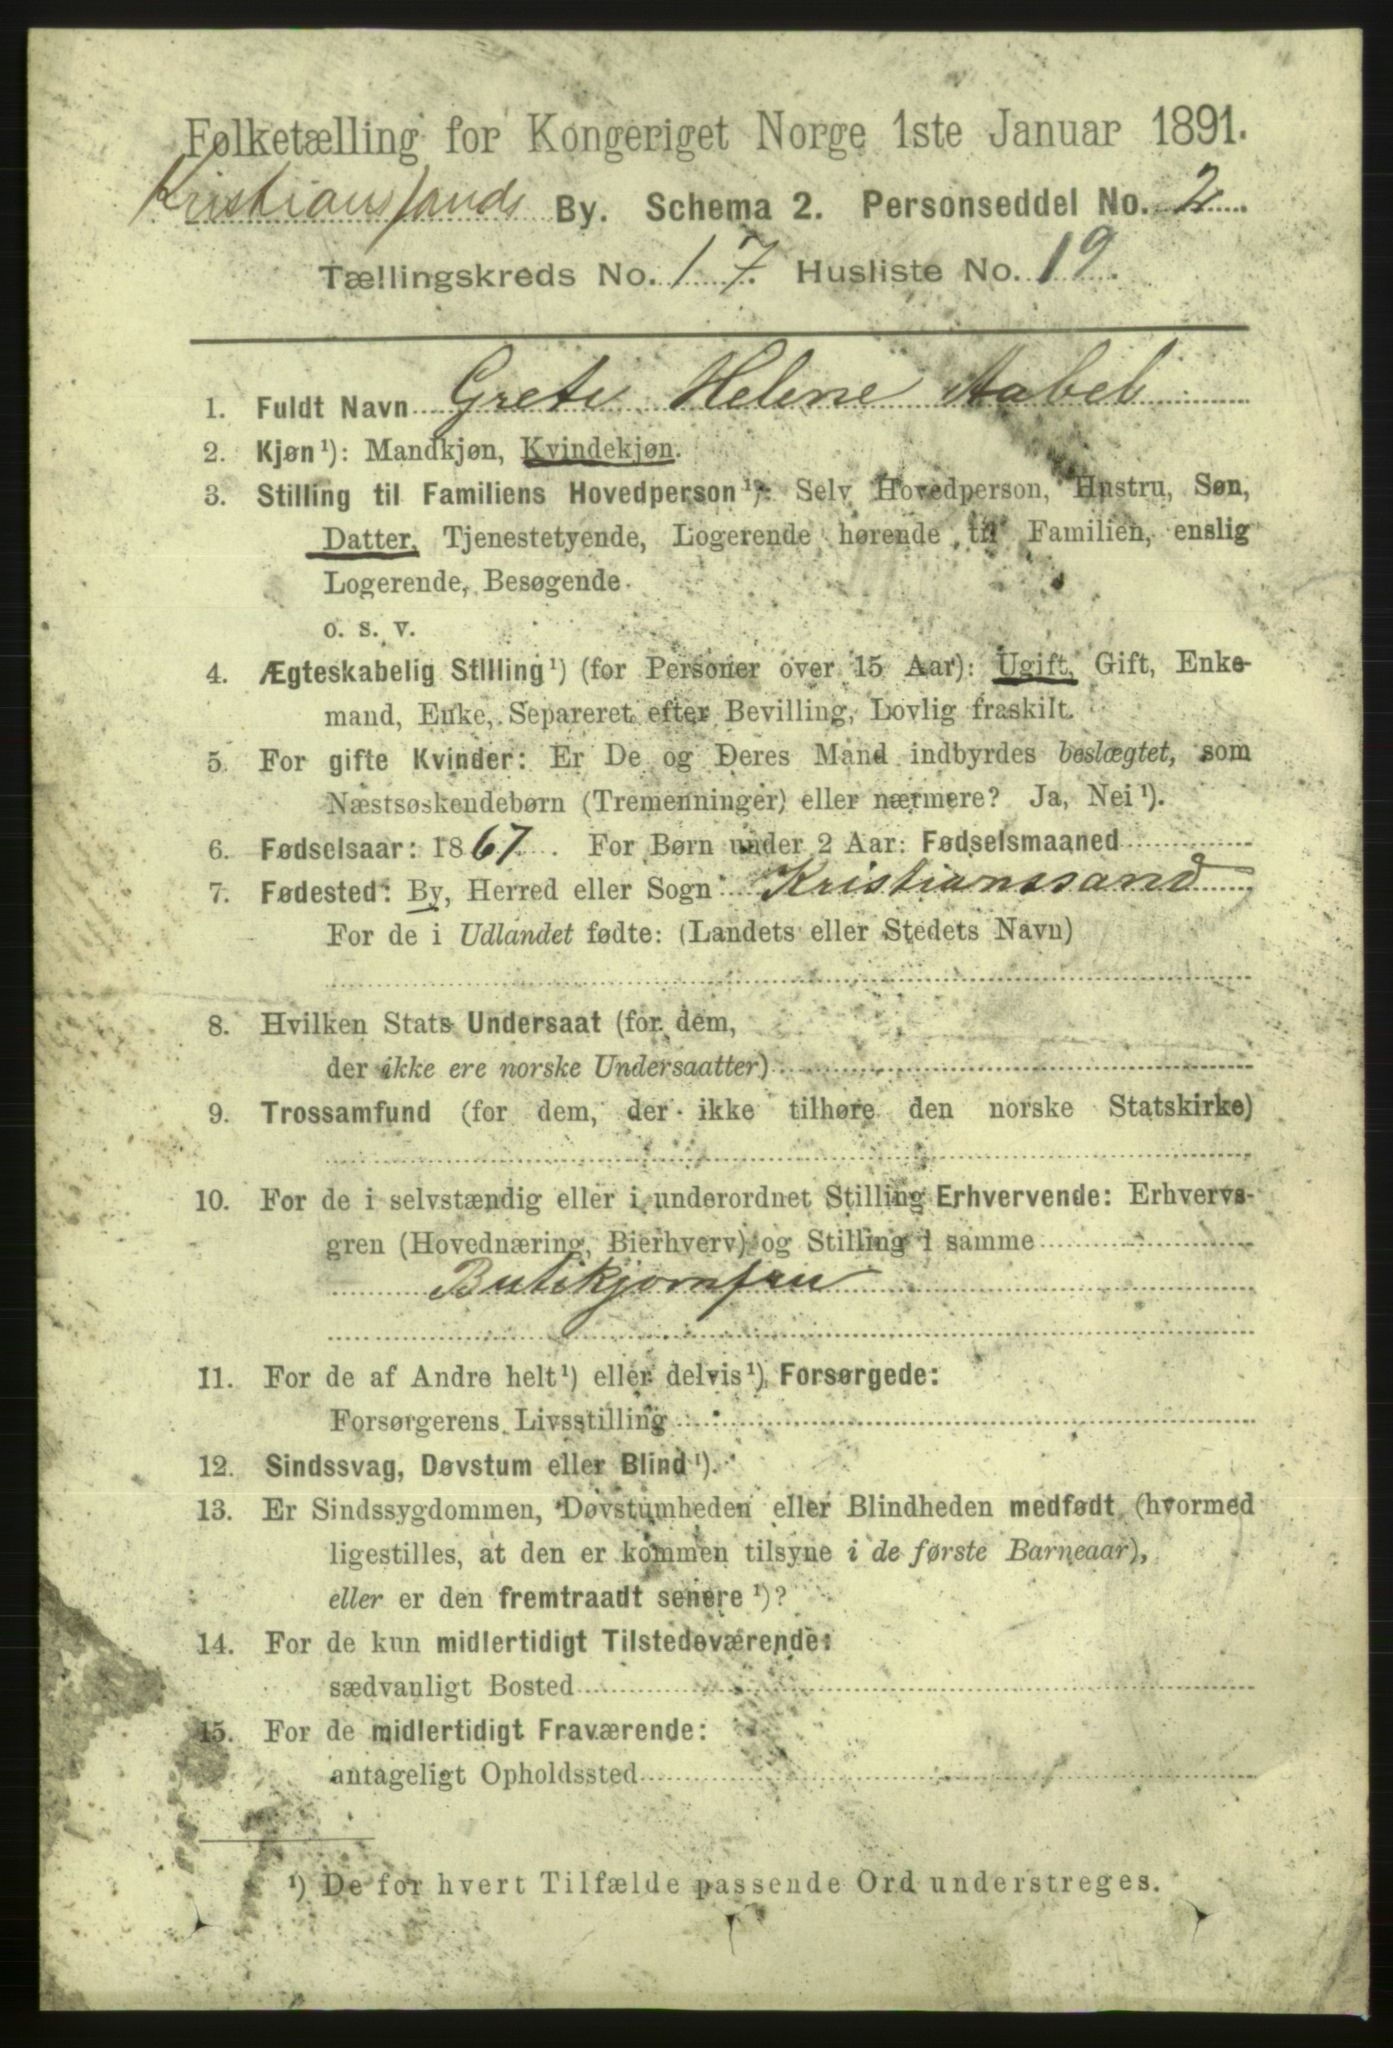 Folketælling for Kongeriget Norge 1ste Januar 1891.
Kristianssands By. Schema 2. Personseddel No. 2.
Tællingskreds No. 17. Husliste No. 19.
1. Fuldt Navn Grete Helene Aabel
2. Kjøn ¹): Mandkjøn, Kvindekjøn.
3. Stilling til Familiens Hovedperson ¹): Selv Hovedperson, Hustru, Søn,
Datter, Tjenestetyende, Logerende hørende til Familien, enslig
Logerende, Besøgende
o. s. v.
4. Ægteskabelig Stilling ¹) (for Personer over 15 Aar): Ugift, Gift, Enke-
mand, Enke, Separeret efter Bevilling, Lovlig fraskilt.
5. For gifte Kvinder: Er De og Deres Mand indbyrdes beslægtet, som
Næstsøskendebørn (Tremenninger) eller nærmere? Ja, Nei ¹).
6. Fødselsaar: 1867. For Børn under 2 Aar: Fødselsmaaned
7. Fødested: By, Herred eller Sogn Kristianssand
For de i Udlandet fødte: (Landets eller Stedets Navn)
8. Hvilken Stats Undersaat (for dem,
der ikke ere norske Undersaatter)
9. Trossamfund (for dem, der ikke tilhøre den norske Statskirke)
10. For de i selvstændig eller i underordnet Stilling Erhvervende: Erhvervs-
gren (Hovednæring, Bierhverv) og Stilling i samme
Butikjomfru
11. For de af Andre helt ¹) eller delvis ¹) Forsørgede:
Forsørgerens Livsstilling
12. Sindssvag, Døvstum eller Blind ¹).
13. Er Sindssygdommen, Døvstumheden eller Blindheden medfødt (hvormed
ligestilles, at den er kommen tilsyne i de første Barneaar),
eller er den fremtraadt senere ¹)?
14. For de kun midlertidigt Tilstedeværende:
sædvanligt Bosted
15. For de midlertidigt Fraværende:
antageligt Opholdssted
¹) De for hvert Tilfælde passende Ord understreges.